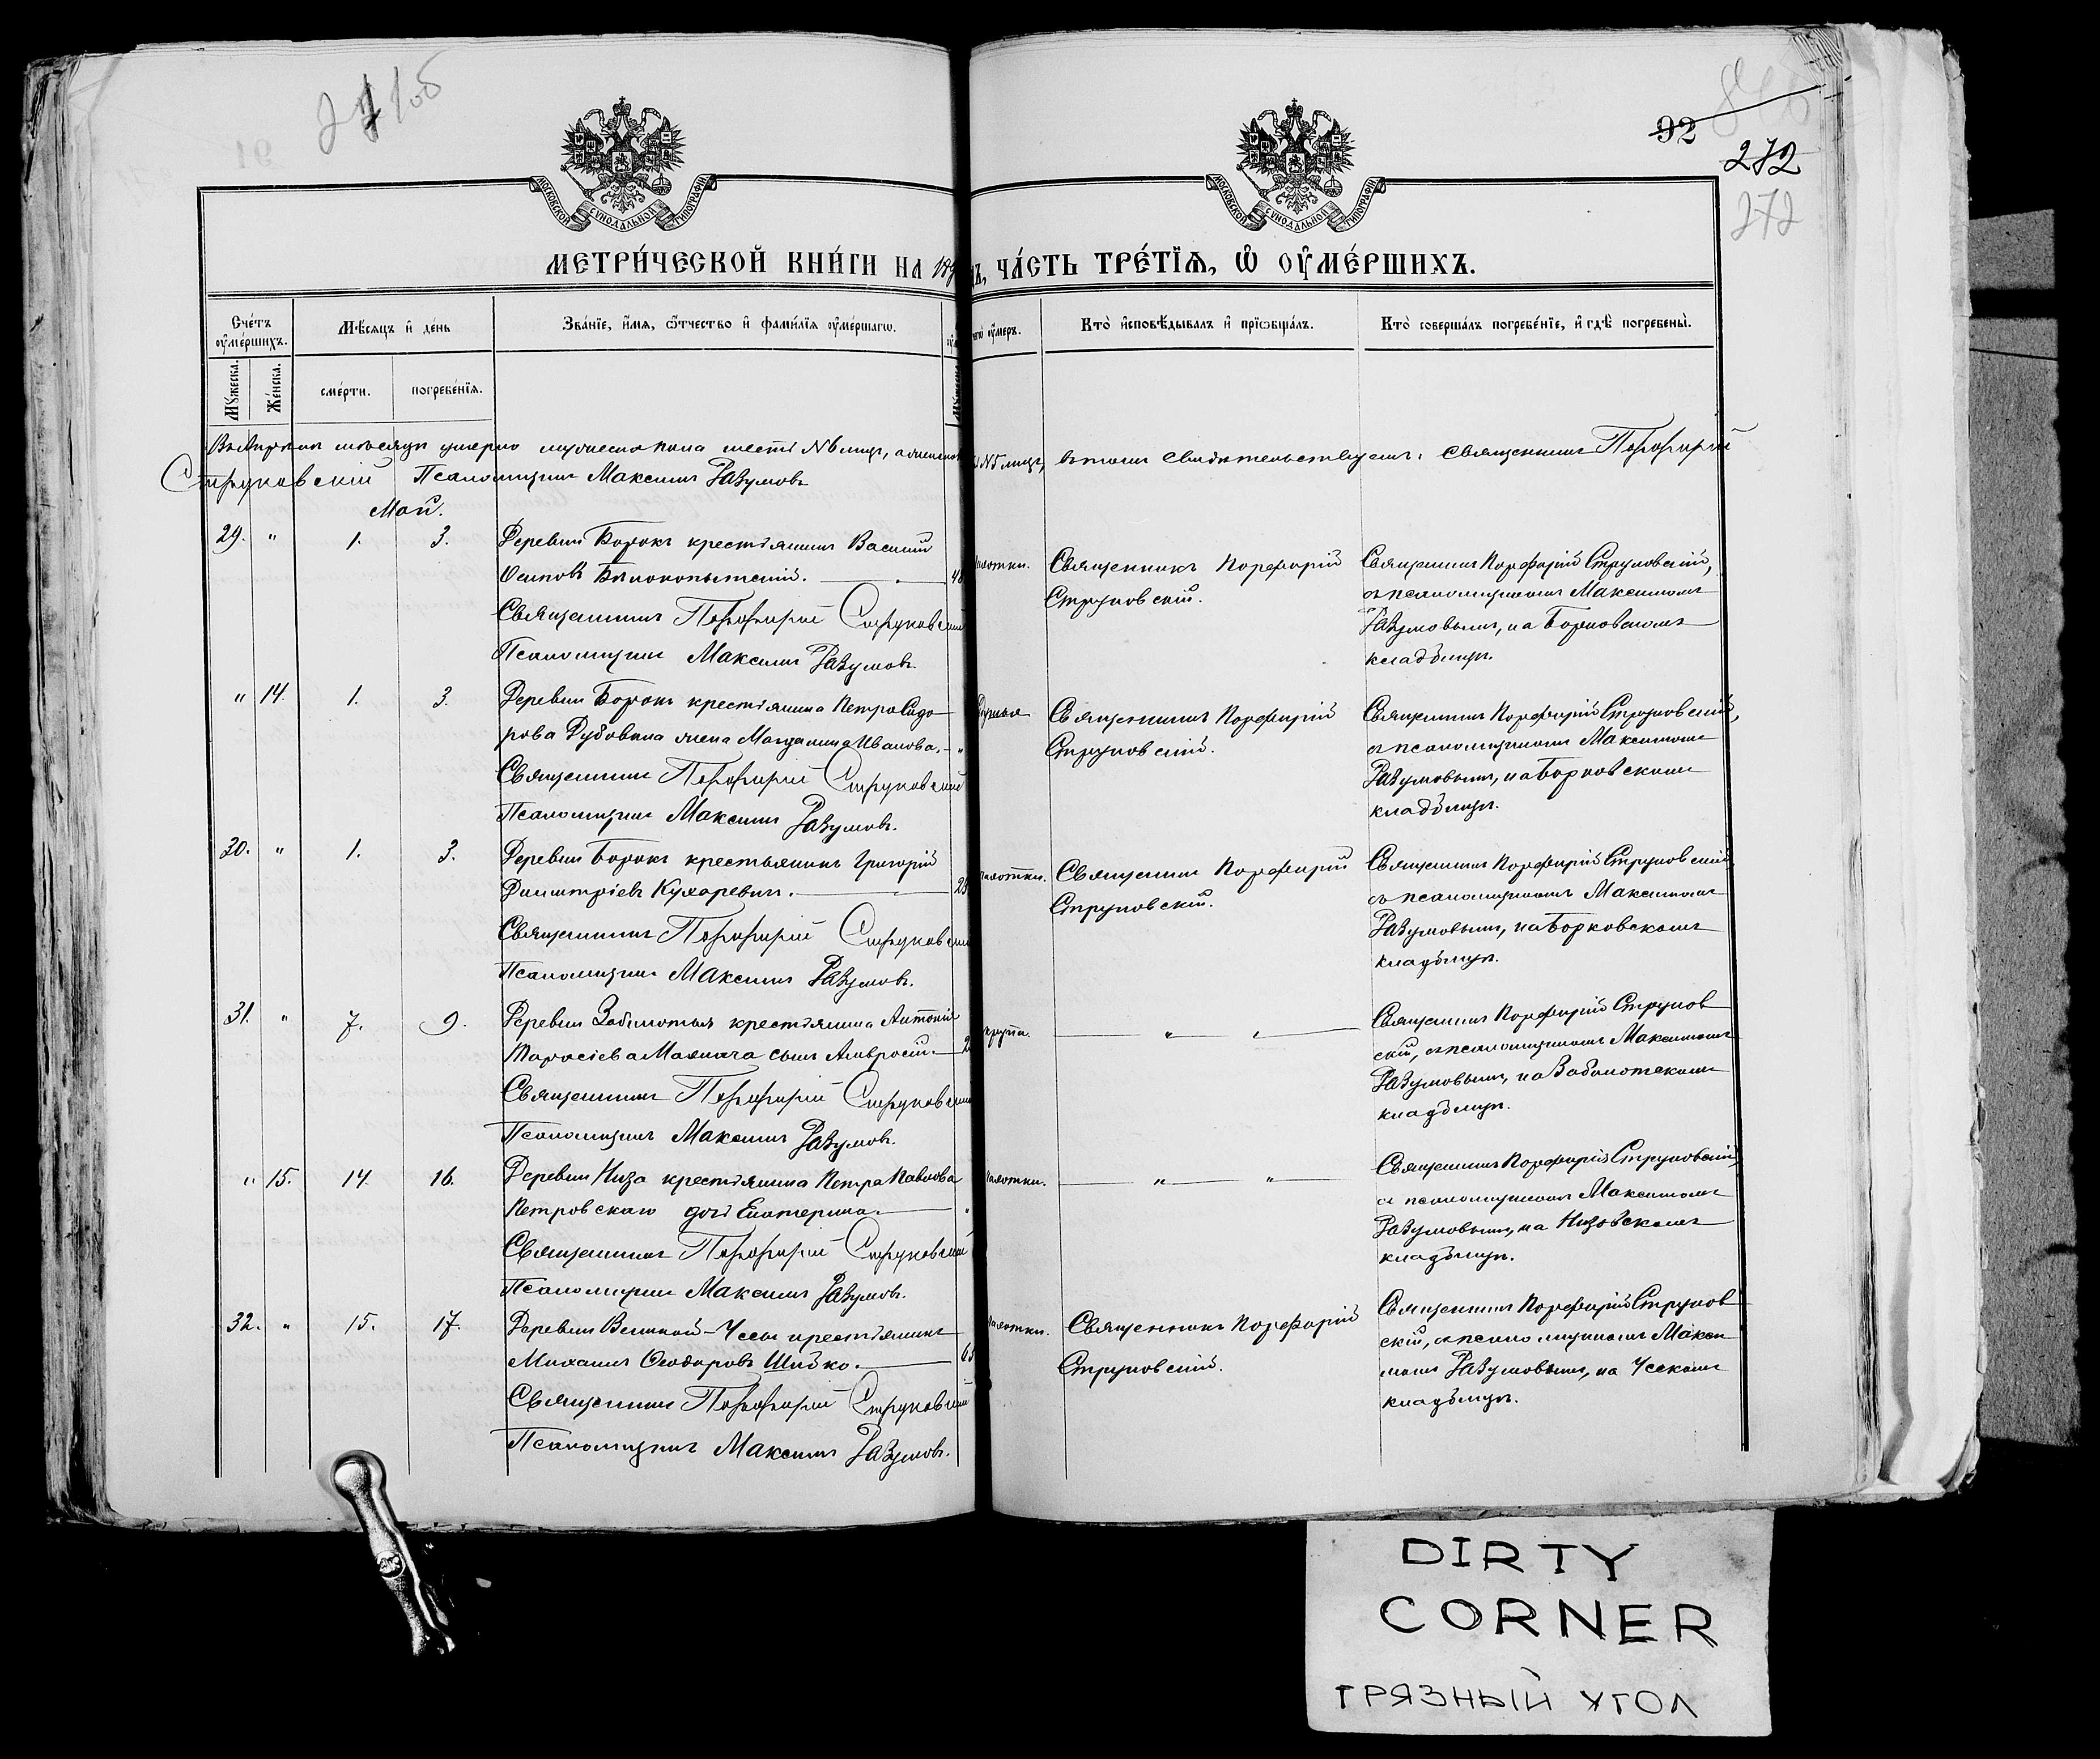 92
272
272
МОСКОВСКОЙ СѴНОДАЛЬНОЙ ТИПОГРАФІИ
МОСКОВСКОЙ СѴНОДАЛЬНОЙ ТИПОГРАФІИ
МЕТРИ́ЧЕСКОЙ КНИ́ГИ НА 189 ЧА́СТЬ ТРЕ́ТІѦ, Ѡ ОУМЕ́РШИХЪ.
Сче́тъ оуме́ршихъ.
Мѣ́сяцъ и де́нь
Зва́ніе, и́мя, ѻ́тчество и фами́лія оуме́ршагѡ.
оу́меръ.
Кто̀ исповѣ́дывалъ и пріѡбща́лъ.
Кто̀ соверша́лъ погребе́ніе, и гдѣ̀ погребены̀.
Мꙋ́жеска.
Же́нска.
сме́рти.
погребе́нїя.
Въ Апрѣлѣ мѣсяцѣ умерло мужеска пола шесть №6 лицъ, а женска №5 лицъ, въ томъ свидѣтельствуемъ: Священникъ Порфирій
Струковскій Псаломщикъ Максимъ Разумовъ
Май.
29. " 1. 3. Деревни Борокъ крестьянинъ Василій
Осиповъ Бѣлокопытскій. 48
Священникъ Порфирій Струковскій
Псаломщикъ Максимъ Разумовъ.
чахотки.
Священникъ Порфирій
Струковскій.
Священникъ Порфирій Струковскій,
съ псаломщикомъ Максимомъ
Разумовымъ, на Борковскомъ
кладбищѣ.
" 14. 1. 3. Деревни Борокъ крестьянина Петра Сидо-
рова Дубовика жена Магдалина Иванова. "
Священникъ Порфирій Струковскій
Псаломщикъ Максимъ Разумовъ.
Священникъ Порфирій
Струковскій.
Священникъ Порфирій Струковскій,
съ псаломщикомъ Максимомъ
Разумовымъ, на Борковскомъ
кладбищѣ.
30. " 1. 3. Деревни Борокъ крестьянинъ Григорій
Димитріевъ Кухаревич. 28
Священникъ Порфирій Струковскій
Псаломщикъ Максимъ Разумовъ.
чахотки.
Священникъ Порфирій
Струковскій.
Священникъ Порфирій Струковскій,
съ псаломщикомъ Максимомъ
Разумовымъ, на Борковскомъ
кладбищѣ.
31. " 7. 9. Деревни Заболотья крестьянина Антонія
Тарасіева сынъ Амвросій. 2
Священникъ Порфирій Струковскій
Псаломщикъ Максимъ Разумовъ.
крупа.
" "
Священникъ Порфирій Струков
скій, съ псаломщикомъ Максимомъ
Разумовымъ, на Заболотскомъ
кладбищѣ.
" 15. 14. 16. Деревни Низа крестьянина Петра Павлова
Петровскаго дочь Екатерина. "
Священникъ Порфирій Струковскій
Псаломщикъ Максимъ Разумовъ.
чахотки.
" "
Священникъ Порфирій Струковскій,
съ псаломщикомъ Максимомъ
Разумовымъ, на Низовскомъ
кладбищѣ.
32. " 15. 17. Деревни Великой-Уссы крестьянинъ
Михаилъ Ѳеодоровъ Шидко.
Священникъ Порфирій Струковскій
Псаломщикъ Максимъ Разумовъ.
чахотки.
Священникъ Порфирій
Струковскій.
Священникъ Порфирій Струков
скій, съ псаломщикомъ Макси
момъ Разумовымъ, на Усскомъ
кладбищѣ.
DIRTY
CORNER
ГРЯЗНЫЙ УГОЛ